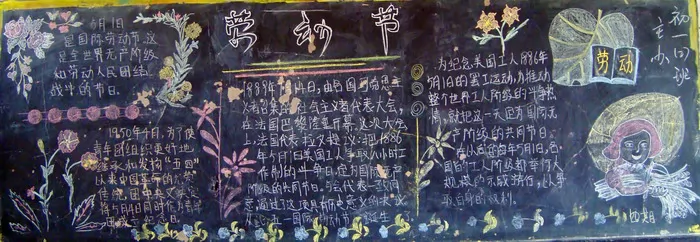 劳动节
五月1日
是国际劳动节,这
是全世界无产阶级
和劳动人民团结
战斗的节日。
1950年4月,为了使
青年团组织更好地
继承和发扬"五四"
以来中国革命的光荣
传统,团中央
将5月4日
1889年7月14日,由各国
召集的社会主义者代表大会,
在法国巴黎隆重开幕。这次大会上,
法国代表拉文提议:把1886
年5月1日美国工人争取八小时工
作制的斗争日,定为国际无产
阶级的共同节日。与会代表一致同
意,通过了这项具有历史意义的决议。
从此,五一国际劳动节诞生了。
为纪念美国工人1886年
5月1日的罢工运动,为推动
整个世界工人阶级的斗争热
情,就把这一天定为国际无
产阶级的共同节日。
在此后的每年5月1日,各
国的工人阶级都举行大
规模的示威游行,以争
取自身的权利。
劳动
初一(四)班
主办